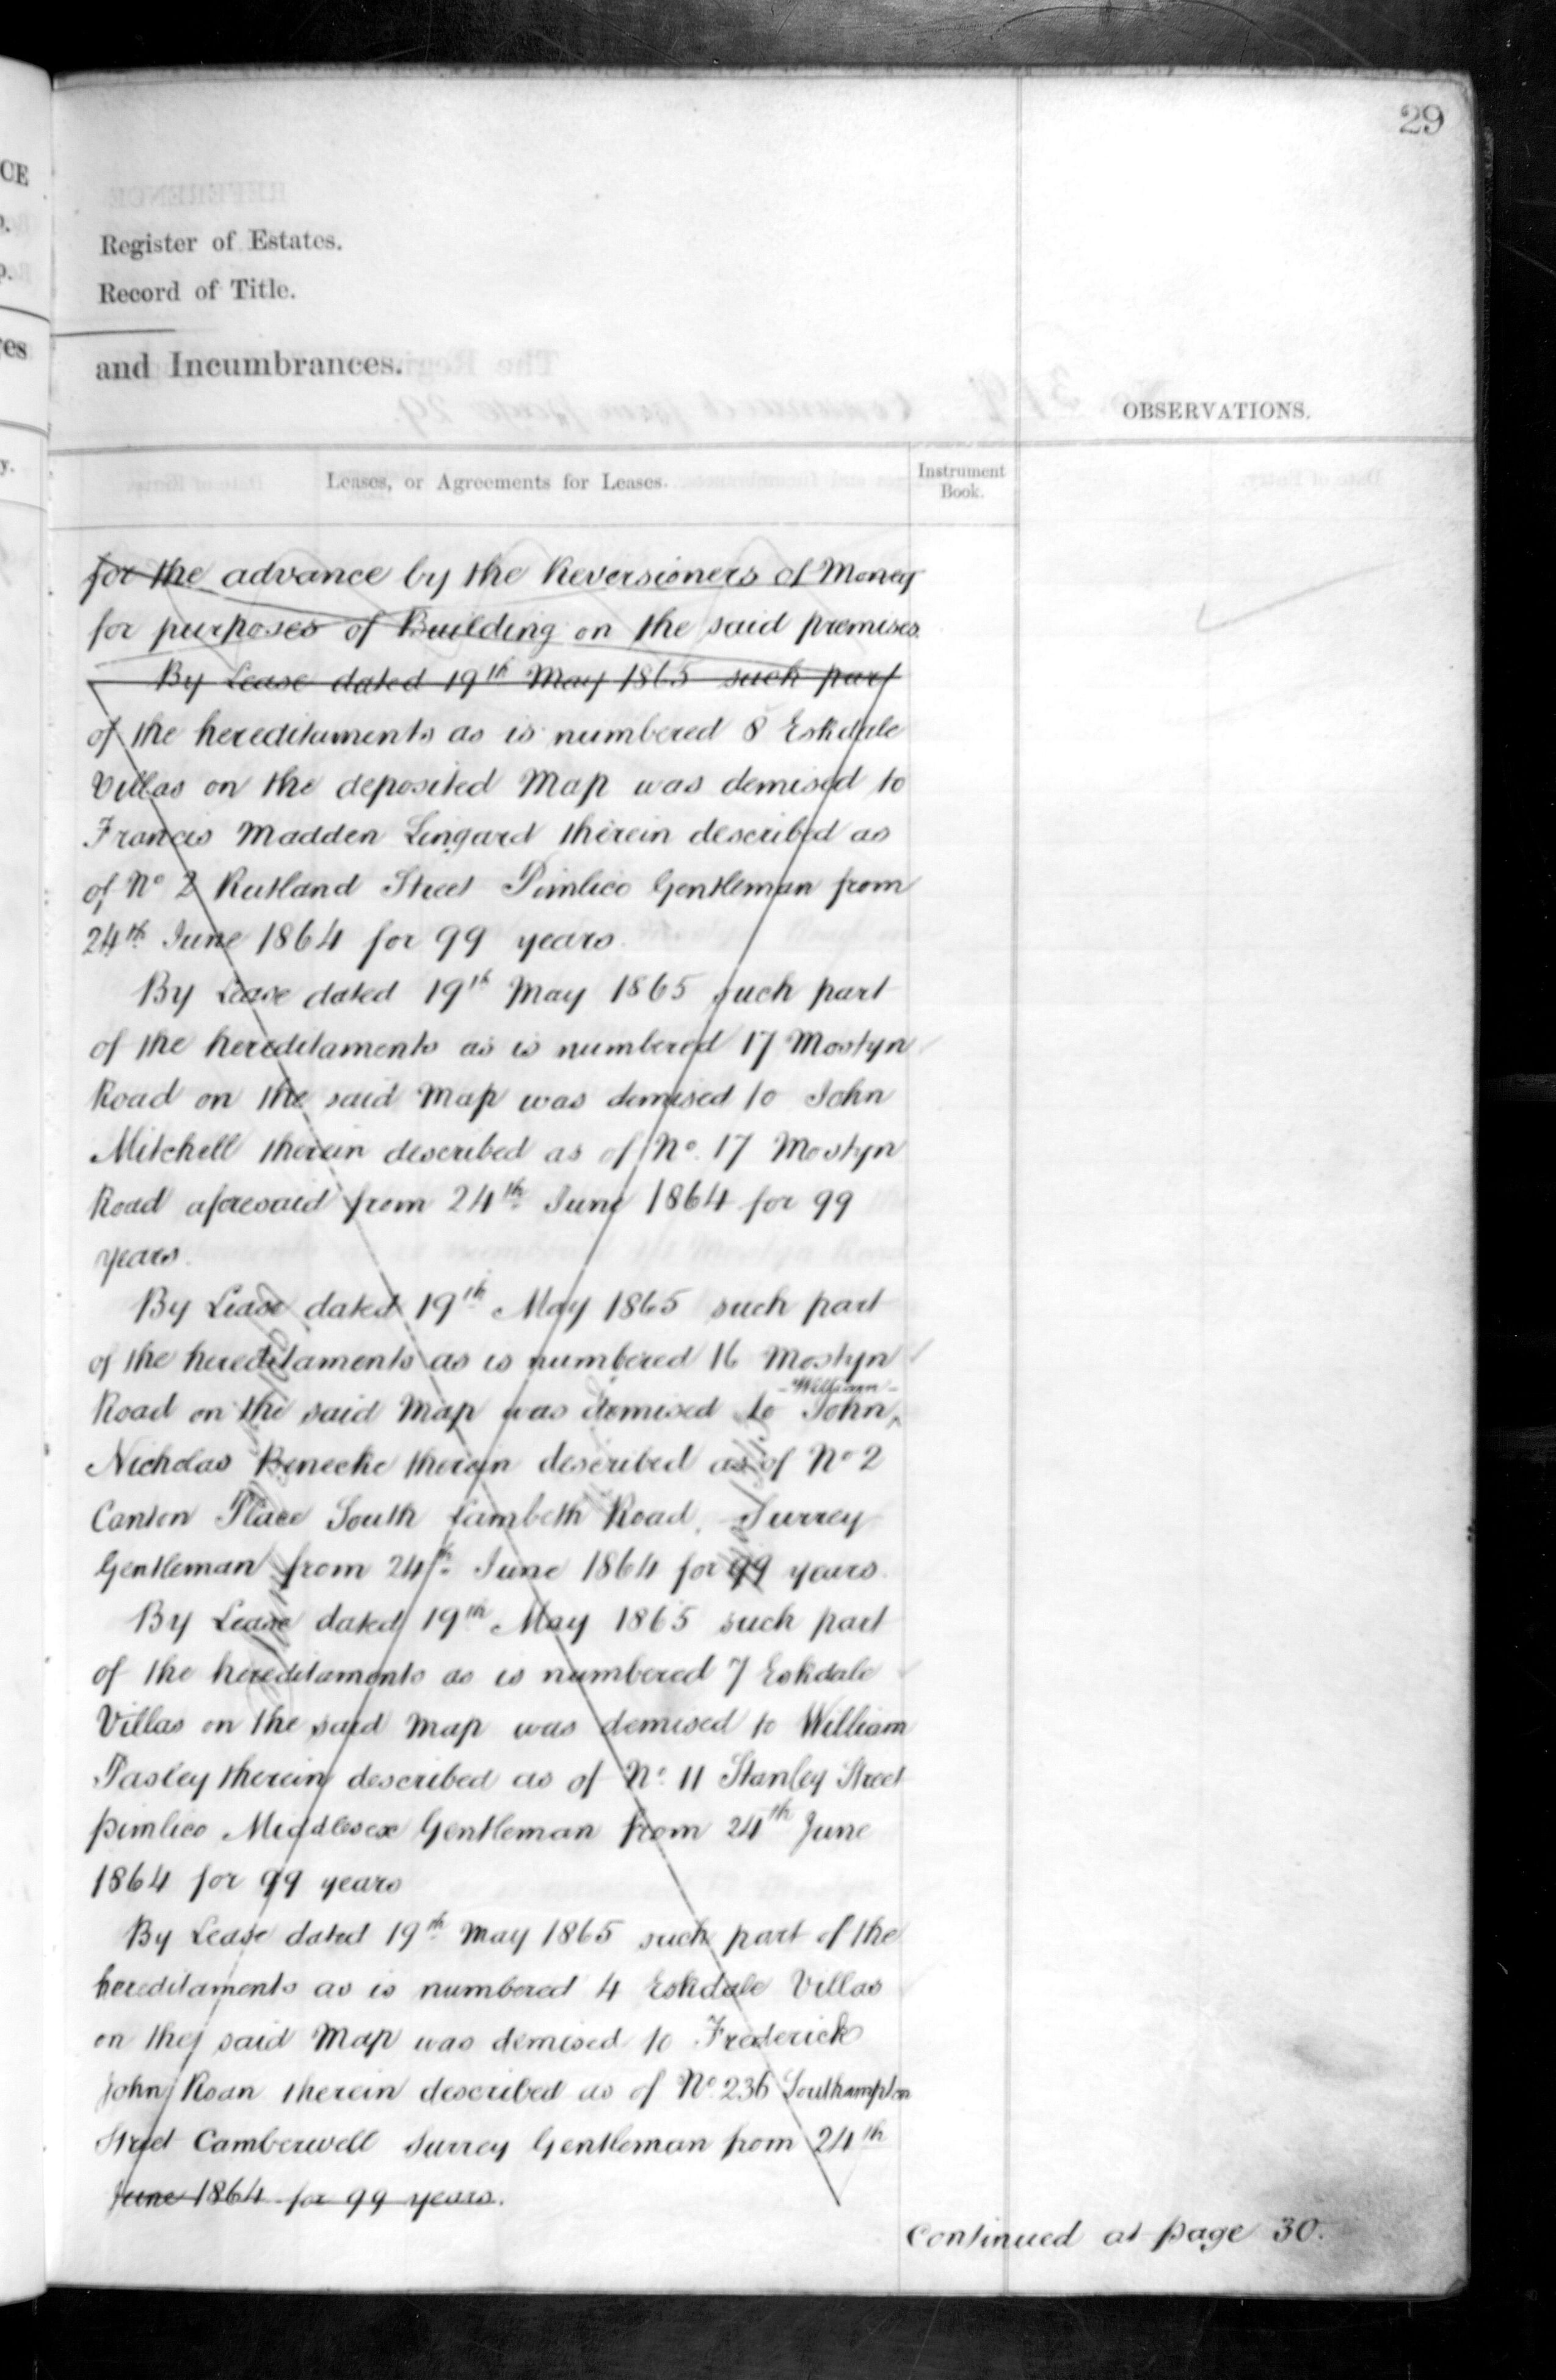 29
Register of Estates.
Record of Title.
and Incumbrances.
OBSERVATIONS.
Leases, or Agreements for Leases.
Instrument
Book.
for the advance by the Reversioners of Money
for purposes of Building on the said premises.
By Lease dated 19th May 1865 such part
of the hereditaments as is numbered 8 Eskdale
Villas on the deposited Map was demised to
Francis Madden Lingard therein described as
of No 2 Rutland Street Pimlico Gentleman from
24th June 1864 for 99 years.
By Lease dated 19th May 1865 such part
of the hereditaments as is numbered 17 Mostyn
Road on the said Map was demised to John
Mitchell therein described as of No. 17 Mostyn
Road aforesaid from 24th June 1864 for 99
years.
By Lease dated 19th May 1865 such part
of the hereditaments as is numbered 16 Mostyn
William
Road on the said Map was demised to John
Nicholas Benecke therein described as of No 2
Canton Place South Lambeth Road, Surrey
Gentleman from 24th June 1864 for 99 years.
By Lease dated 19th May 1865 such part
of the hereditaments as is numbered 7 Eskdale
Villas on the said Map was demised to William
Pasley therein described as of No. 11 Stanley Street
Pimlico Middlesex Gentleman from 24th June
1864 for 99 years
By Lease dated 19th May 1865 such part of the
hereditaments as is numbered 4 Eskdale Villas
on the said Map was demised to Frederick
John Roan therein described as of No. 236 Southampton
Street Camberwell Surrey Gentleman from 24th
June 1864 for 99 years.
Continued at page 30.